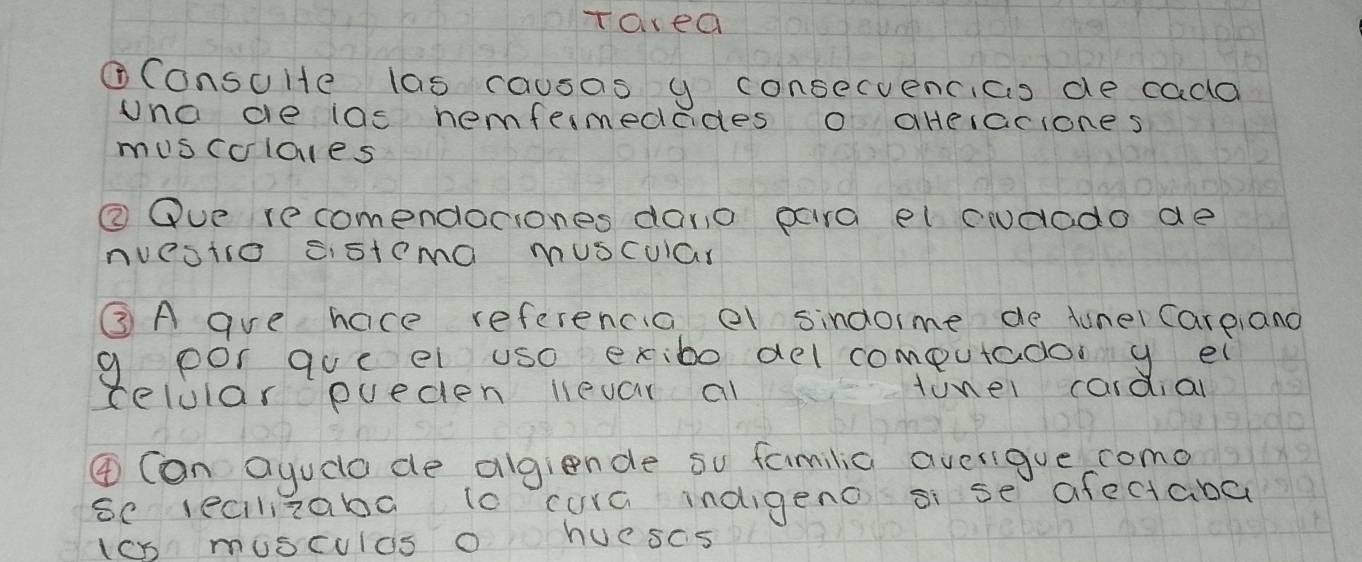 Tarea
① Consulte las causas y consecuencias de cada
una de las hemfermedades o alteraciones
musculares
② Que recomendaciones daria para el cuidado de
nuestro sistema muscular
③ A que hace referencia el sindorme de tunel Carpiano
y por que el uso exibo del computador y el
celular pueden llevar al tunel cardial
④ Con ayuda de algiende su familia averigue como
se realizaba la cura indigena si se afectaba
los musculos o huesos